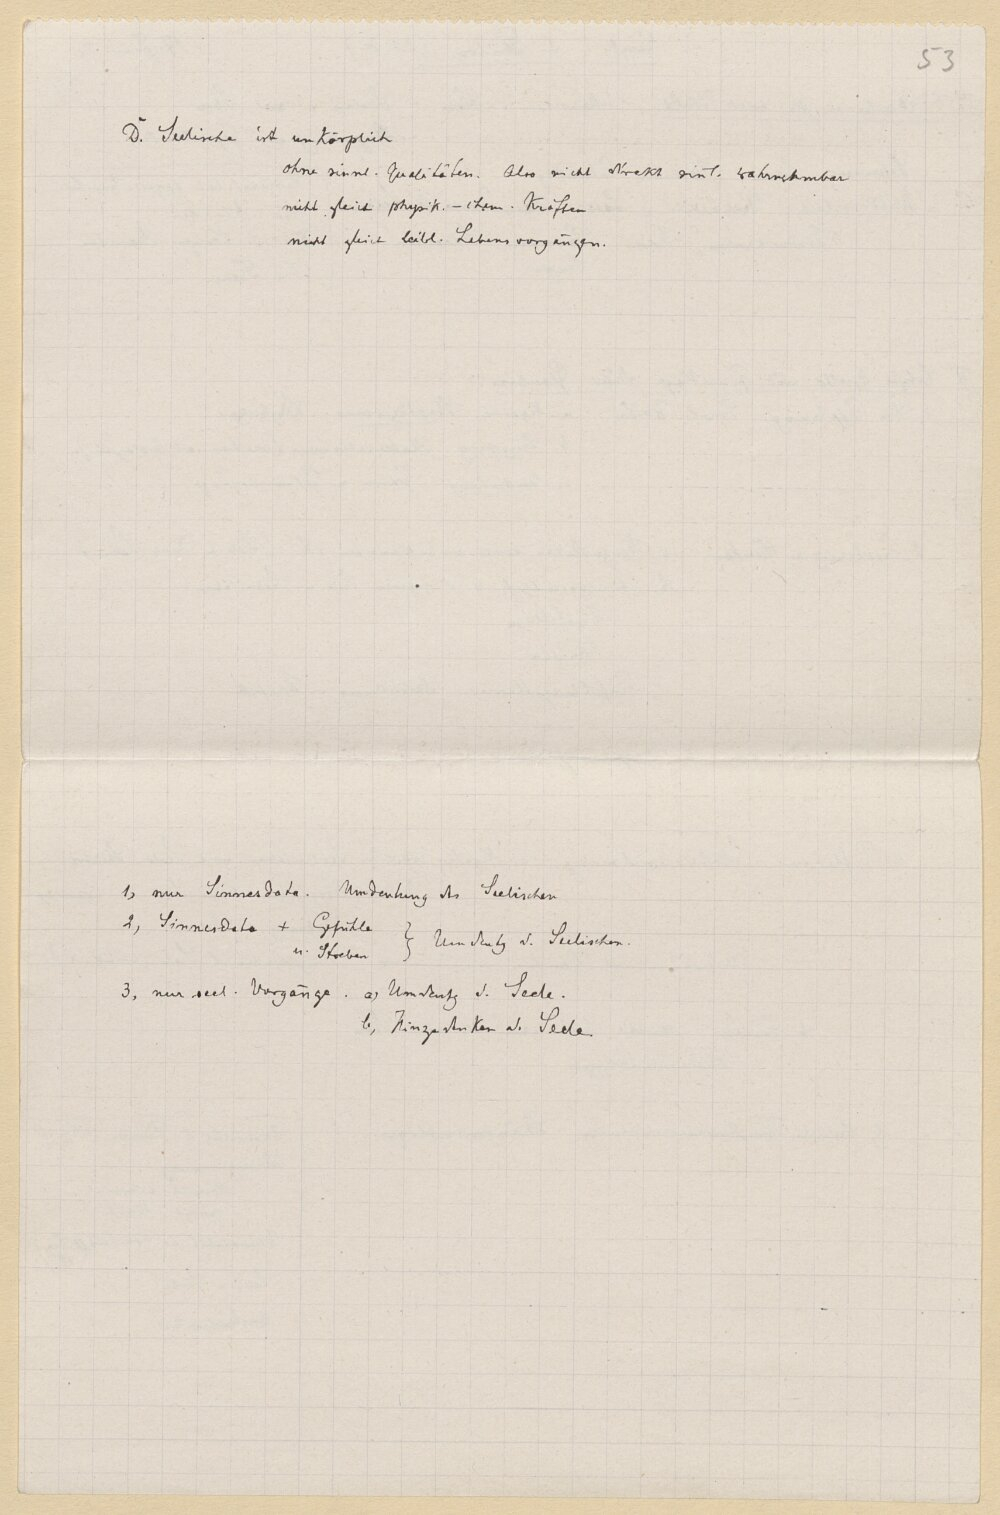 53
D. Seelische ist unkörperlich
ohne sinnl. Qualitäten. Also nicht direkt sinl. wahrnehmbar
nicht gleich physik.-chem. Kräften
nicht gleich leibl. Lebensvorgängen.
1, nur Sinnesdata. Umdeutung des Seelischen
2, Sinnesdata + Gefühle
u. Streben } Umdeutg d. Seelischen.
3, nur seel. Vorgänge. a, Umdeutg d. Seele.
b, Hinzudenken d. Seele